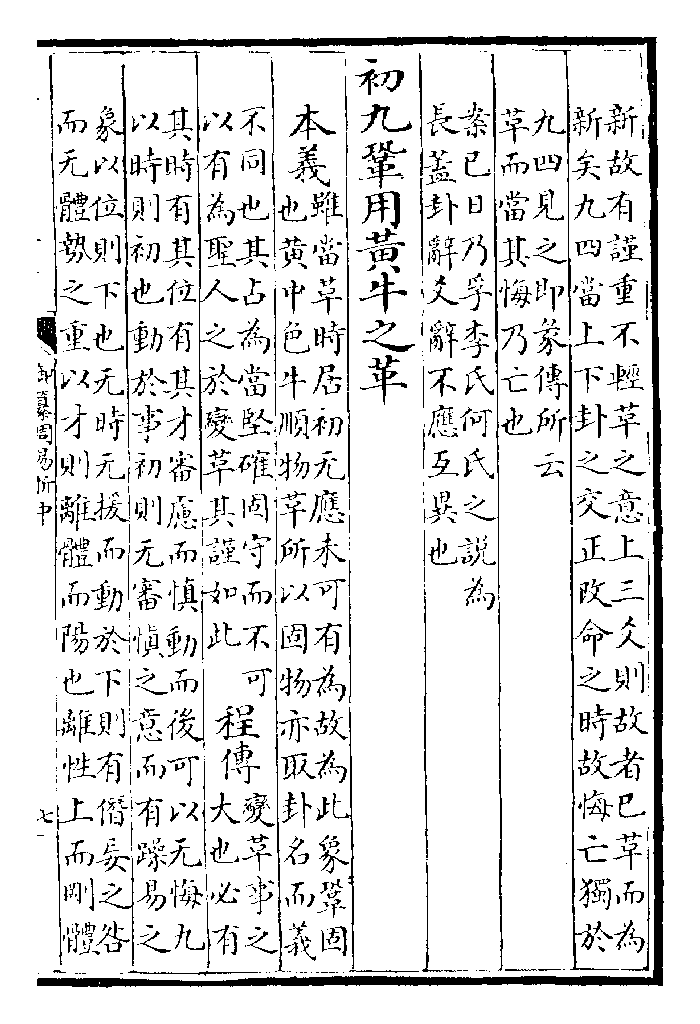 新故有謹重不輕革之意上三爻則故者已革而為
新矣九四當上下卦之交正改命之時故悔亡獨於
九四見之即彖傳所云
革而當其悔乃亡也
案已日乃孚李氏何氏之説為
長蓋卦辭爻辭不應互異也
初九鞏用黃牛之革
本義
雖當革時居初无應未可有為故為此象鞏固
也黄中色牛順物革所以固物亦取卦名而義
不同也其占為當堅確固守而不可
以有為聖人之於變革其謹如此
程傳
變革事之
大也必有
其時有其位有其才審慮而慎動而後可以无悔九
以時則初也動於事初則无審慎之意而有躁易之
象以位則下也无時无援而動於下則有僭妄之咎
而无體勢之重以才則離體而陽也離性上而剛體
御纂周易折中
七